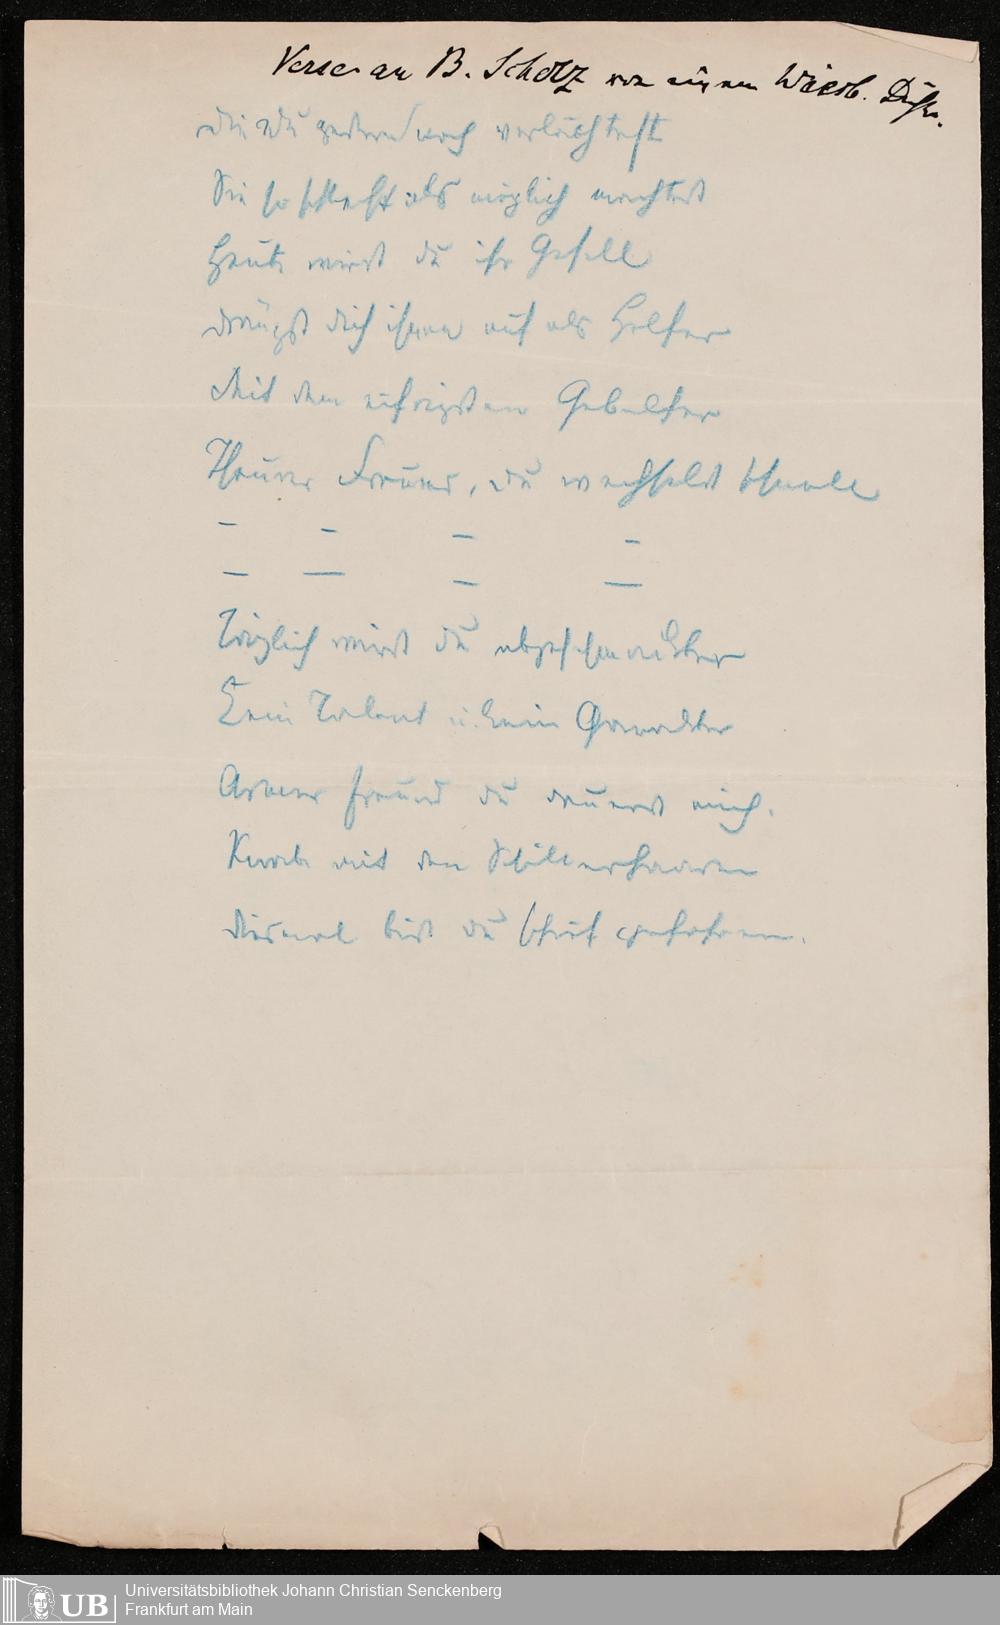 Verse an B. Scholz von einem Wiesb. Dichter.
Die Du gestern noch verlachtest
Sie so schlecht als möglich machtest
Heute wirst du ihr Gesell
Drängst dich ihnen auf als Helfer
Mit dem eifrigsten Gebelfer
Theurer Freund, du wechselst schnell
— — — —
— — — —
Täglich wirst du abgeschmackter
Kein Talent u. kein Charakter
Armer Freund du dauerst mich.
Knabe mit den Schillerhaaren
Diesmal bist du schief gefahren.
UB Universitätsbibliothek Johann Christian Senckenberg
Frankfurt am Main